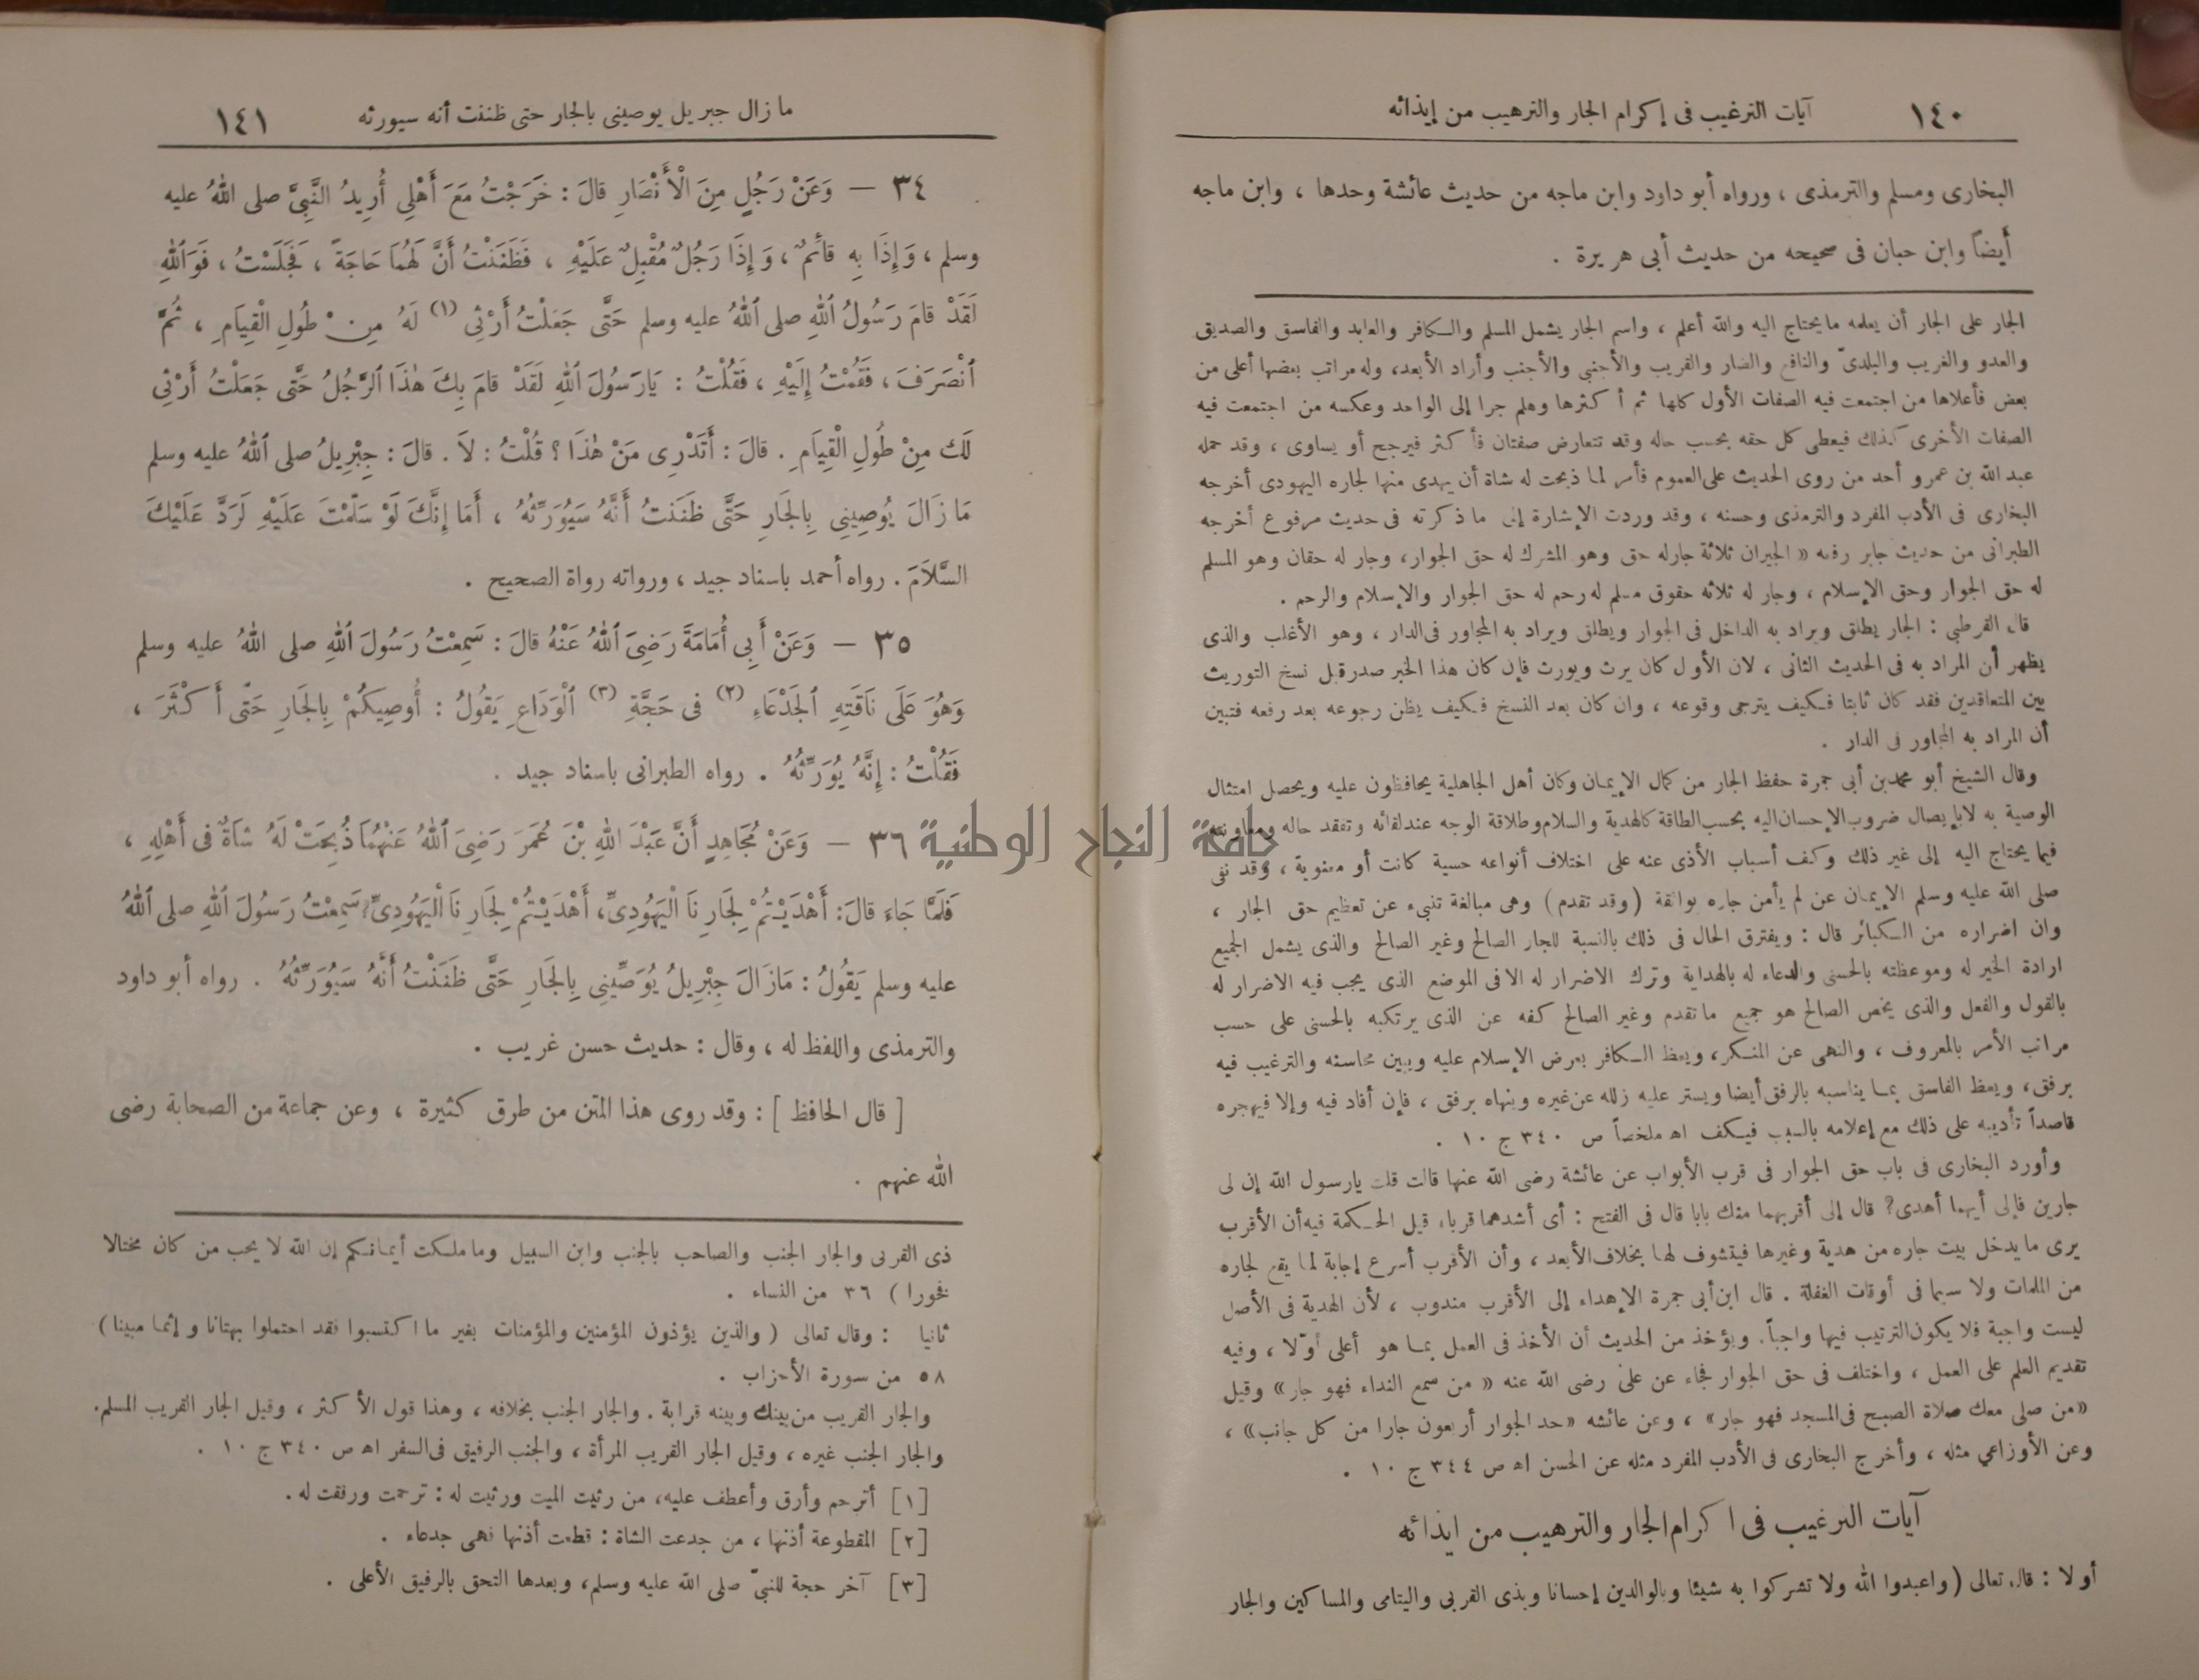 ١٤٠ آيات الترغيب فى إكرام الجار والترهيب من إيذائه
البخارى ومسلم والترمذى ، ورواه أبو داود وابن ماجه من حديث عائشة وحدها ، وابن ماجه
أَيضاً وابن حبان فى صحيحه من حديث أبى هريرة .
الجار على الجار أن يعلمه ما يحتاج اليه والله أعلم ، واسم الجار يشمل المسلم والكافر والعابد والفاسق والصديق
والعدو والغريب والبلدىّ والنافع والضار والقريب والأجنبى والأجنب وأراد الأبعد، وله مراتب بعضها أعلى من
بعض فأعلاها من اجتمعت فيه الصفات الأول كلها ثم أكثرها وهلم جرا إلى الواحد وعكسه من اجتمعت فيه
الصفات الأخرى كذلك فيعطى كل حقه بحسب حاله وقد تتعارض صفتان فأكثر فيرجح أو يساوى ، وقد حمله
عبد الله بن عمرو أحد من روى الحديث على العموم فأمر لما ذبحت له شاة أن يهدى منها لجاره اليهودى أخرجه
البخارى فى الأدب المفرد والترمذى وحسنه ، وقد وردت الإشارة إلى ما ذكرته فى حديث مرفوع أخرجه
الطبرانى من حديث جابر رفعه « الجيران ثلاثة جار له حق وهو المشرك له حق الجوار، وجار له حقان وهو المسلم
له حق الجوار وحق الإسلام ، وجار له ثلاثة حقوق مسلم له رحم له حق الجوار والإسلام والرحم .
قال القرطبى : الجار يطلق ويراد به الداخل فى الجوار ويطلق ويراد به المجاور فى الدار ، وهو الأغلب والذى
يظهر أن المراد به فى الحديث الثانى ، لان الأول كان يرث ويورث فإن كان هذا الخبر صدر قبل نسخ التوريث
بين المتعاقدين فقد كان ثابتا فكيف يترجى وقوعه ، وان كان بعد النسخ فكيف يظن رجوعه بعد رفعه فتبين
أن المراد به المجاور فى الدار .
وقال الشيخ أبو محمد بن أبى جمرة حفظ الجار من كمال الإيمان وكان أهل الجاهلية يحافظون عليه ويحصل امتثال
الوصية به لايإيصال ضروب الإحسان اليه بحسب الطاقة كالهدية والسلام وطلاقة الوجه عند لقائه وتفقد حاله ومعاونته
فيما يحتاج اليه إلى غير ذلك وكف أسباب الأذى عنه على اختلاف أنواعه حسية كانت أو معنوية ، وقد نفى
صلى الله عليه وسلم الإيمان عن لم يأمن جاره بوائقة (وقد تقدم) وهى مبالغة تنبىء عن تعظيم حق الجار ،
وان اضراره من الكبائر قال : ويفترق الحال فى ذلك بالنسبة للجار الصالح وغير الصالح والذى يشمل الجميع
ارادة الخير له وموعظته بالحسنى والدعاء له بالهداية وترك الاضرار له الا فى الموضع الذى يجب فيه الاضرار له
بالقول والفعل والذى يخص الصالح هو جميع ما تقدم وغير الصالح كفه عن الذى يرتكبه بالحسنى على حسب
مراتب الأمر بالمعروف ، والنهى عن المنكر، ويعظ الكافر بعرض الإسلام عليه ويبين محاسنه والترغيب فيه
برفق، ويعظ الفاسق بما يناسبه بالرفق أيضا ويستر عليه زلله عن غيره وينهاه برفق ، فإن أفاد فيه وإلا فيهجره
قاصداً تأديبه على ذلك مع إعلامه بالسبب فيكف اه ملخصاً ص ٣٤٠ ج ١٠ .
وأورد البخارى فى باب حق الجوار فى قرب الأبواب عن عائشة رضى الله عنها قالت قلت يارسول الله إن لى
جارين فإلى أيهما أهدى؟ قال إلى أقربهما منك بابا قال فى الفتح : أى أشدهما قربا، قيل الحكمة فيه أن الأقرب
يرى ما يدخل بيت جاره من هدية وغيرها فيتشوف لها بخلاف الأبعد ، وأن الأقرب أسرع إجابة لما يقع لجاره
من الملمات ولا سيما فى أوقات الغفلة . قال ابن أبى جمرة الإهداء إلى الأقرب مندوب ، لأن الهدية فى الأصل
ليست واجبة فلا يكون الترتيب فيها واجباً. ويؤخذ من الحديث أن الأخذ فى العمل بما هو أعلى أوّلا ، وفيه
تقديم العلم على العمل ، واختلف فى حق الجوار فجاء عن على رضى الله عنه « من سمع النداء فهو جار» وقيل
«من صلى معك صلاة الصبح فى المسجد فهو جار» ، وعن عائشه «حد الجوار أربعون جارا من كل جانب» ،
وعن الأوزاعي مثله ، وأخرج البخارى فى الأدب المفرد مثله عن الحسن اه ص ٣٤٤ ج ١٠ .
آيات الترغيب فى اكرام الجار والترهيب من ايذائه
أولا : قال تعالى (واعبدوا الله ولا تشركوا به شيئا وبالوالدين إحسانا وبذى القربى واليتامى والمساكين والجار
ما زال جبريل يوصينى بالجار حتى ظننت أنه سيورثه ١٤١
٣٤ — وَعَنْ رَجُلٍ مِنَ الْأَنْصَارِ قالَ : خَرَجْتُ مَعَ أَهْلِى أُرِيدُ النَّبِىَّ صلى اللهُ عليه
وسلم ، وَإِذَا بِهِ قائمٌ ، وَإِذَا رَجُلٌ مُقْبِلٌ عَلَيْهِ ، فَظَنَنْتُ أَنَّ لَهُمَا حَاجَةً ، فَجَلَسْتُ ، فَوَاللهِ
لَقَدْ قامَ رَسُولُ اللهِ صلى اللهُ عليه وسلم حَتَّى جَعَلْتُ أَرْثِى (١) لَهُ مِنْ طُولِ الْقِيَامِ ، ثُمَّ
انْصَرَفَ ، فَقُمْتُ إِلَيْهِ ، فَقُلْتُ : يَارَسُولَ اللهِ لَقَدْ قامَ بِكَ هٰذَا الرَّجُلُ حَتَّى جَعَلْتُ أَرْثِى
لَكَ مِنْ طُولِ الْقِيَامِ . قالَ : أَتَدْرِى مَنْ هٰذَا ؟ قُلْتُ : لاَ . قالَ : جِبْرِيلُ صلى اللهُ عليه وسلم
مَا زَالَ يُوصِينِى بِالجَارِ حَتَّى ظَنَنتُ أَنَّهُ سَيُوَرِّثُهُ ، أَمَا إِنَّكَ لَوْ سَلَّمْتَ عَلَيْهِ لَرَدَّ عَلَيْكَ
السَّلاَمَ . رواه أحمد باسناد جيد ، ورواته رواة الصحيح .
٣٥ — وَعَنْ أَبِى أُمَامَةَ رَضِىَ اللهُ عَنْهُ قالَ : سَمِعْتُ رَسُولَ اللهِ صلى اللهُ عليه وسلم
وَهُوَ عَلَى نَاقَتِهِ الجَدْعَاءِ (٢) فى حَجَّةِ (٣) الْوَدَاعِ يَقُولُ : أُوصِيكُمْ بِالجَارِ حَتَّى أَكْثَرَ ،
فَقُلْتُ : إِنَّهُ يُوَرِّثُهُ . رواه الطبرانى باسناد جيد .
٣٦ — وَعَنْ مُجَاهِدٍ أَنَّ عَبْدَ اللهِ بْنَ عُمَرَ رَضِىَ اللهُ عَنْهُمَا ذُبِحَتْ لَهُ شَاةٌ فى أَهْلِهِ ،
فَلَمَّا جَاءَ قالَ: أَهْدَيْتُمْ لِجَارِنَا الْيَهُودِىِّ، أَهْدَيْتُمْ لِجَارِنَا الْيَهُودِىِّ؟ سَمِعْتُ رَسُولَ اللهِ صلى اللهُ
عليه وسلم يَقُولُ : مَازَالَ جِبْرِيلُ يُوَصِّينِى بِالجَارِ حَتَّى ظَنَنْتُ أَنَّهُ سَيُوَرِّثُهُ . رواه أبو داود
والترمذى واللفظ له ، وقال : حديث حسن غريب .
[ قال الحافظ ] : وقد روى هذا المتن من طرق كثيرة ، وعن جماعة من الصحابة رضى
الله عنهم .
ذى القربى والجار الجنب والصاحب بالجنب وابن السبيل وما ملكت أيمانكم إن الله لا يحب من كان مختالا
فخورا ) ٣٦ من النساء .
ثانيا : وقال تعالى ( والذين يؤذون المؤمنين والمؤمنات بغير ما اكتسبوا فقد احتملوا بهتانا وإثما مبينا )
٥٨ من سورة الأحزاب .
والجار القريب من بينك وبينه قرابة . والجار الجنب بخلافه ، وهذا قول الأكثر ، وقيل الجار القريب المسلم.
والجار الجنب غيره ، وقيل الجار القريب المرأة ، والجنب الرفيق فى السفر اه ص ٣٤٠ ج ١٠ .
[١] أترحم وأرق وأعطف عليه، من رثيت الميت ورثيت له : ترحمت ورفقت له .
[٢] المقطوعة أذنها ، من جدعت الشاة : قطعت أذنها فهى جدعاء .
[٣] آخر حجة للنبىّ صلى الله عليه وسلم، وبعدها التحق بالرفيق الأعلى .
جامعة النجاح الوطنية